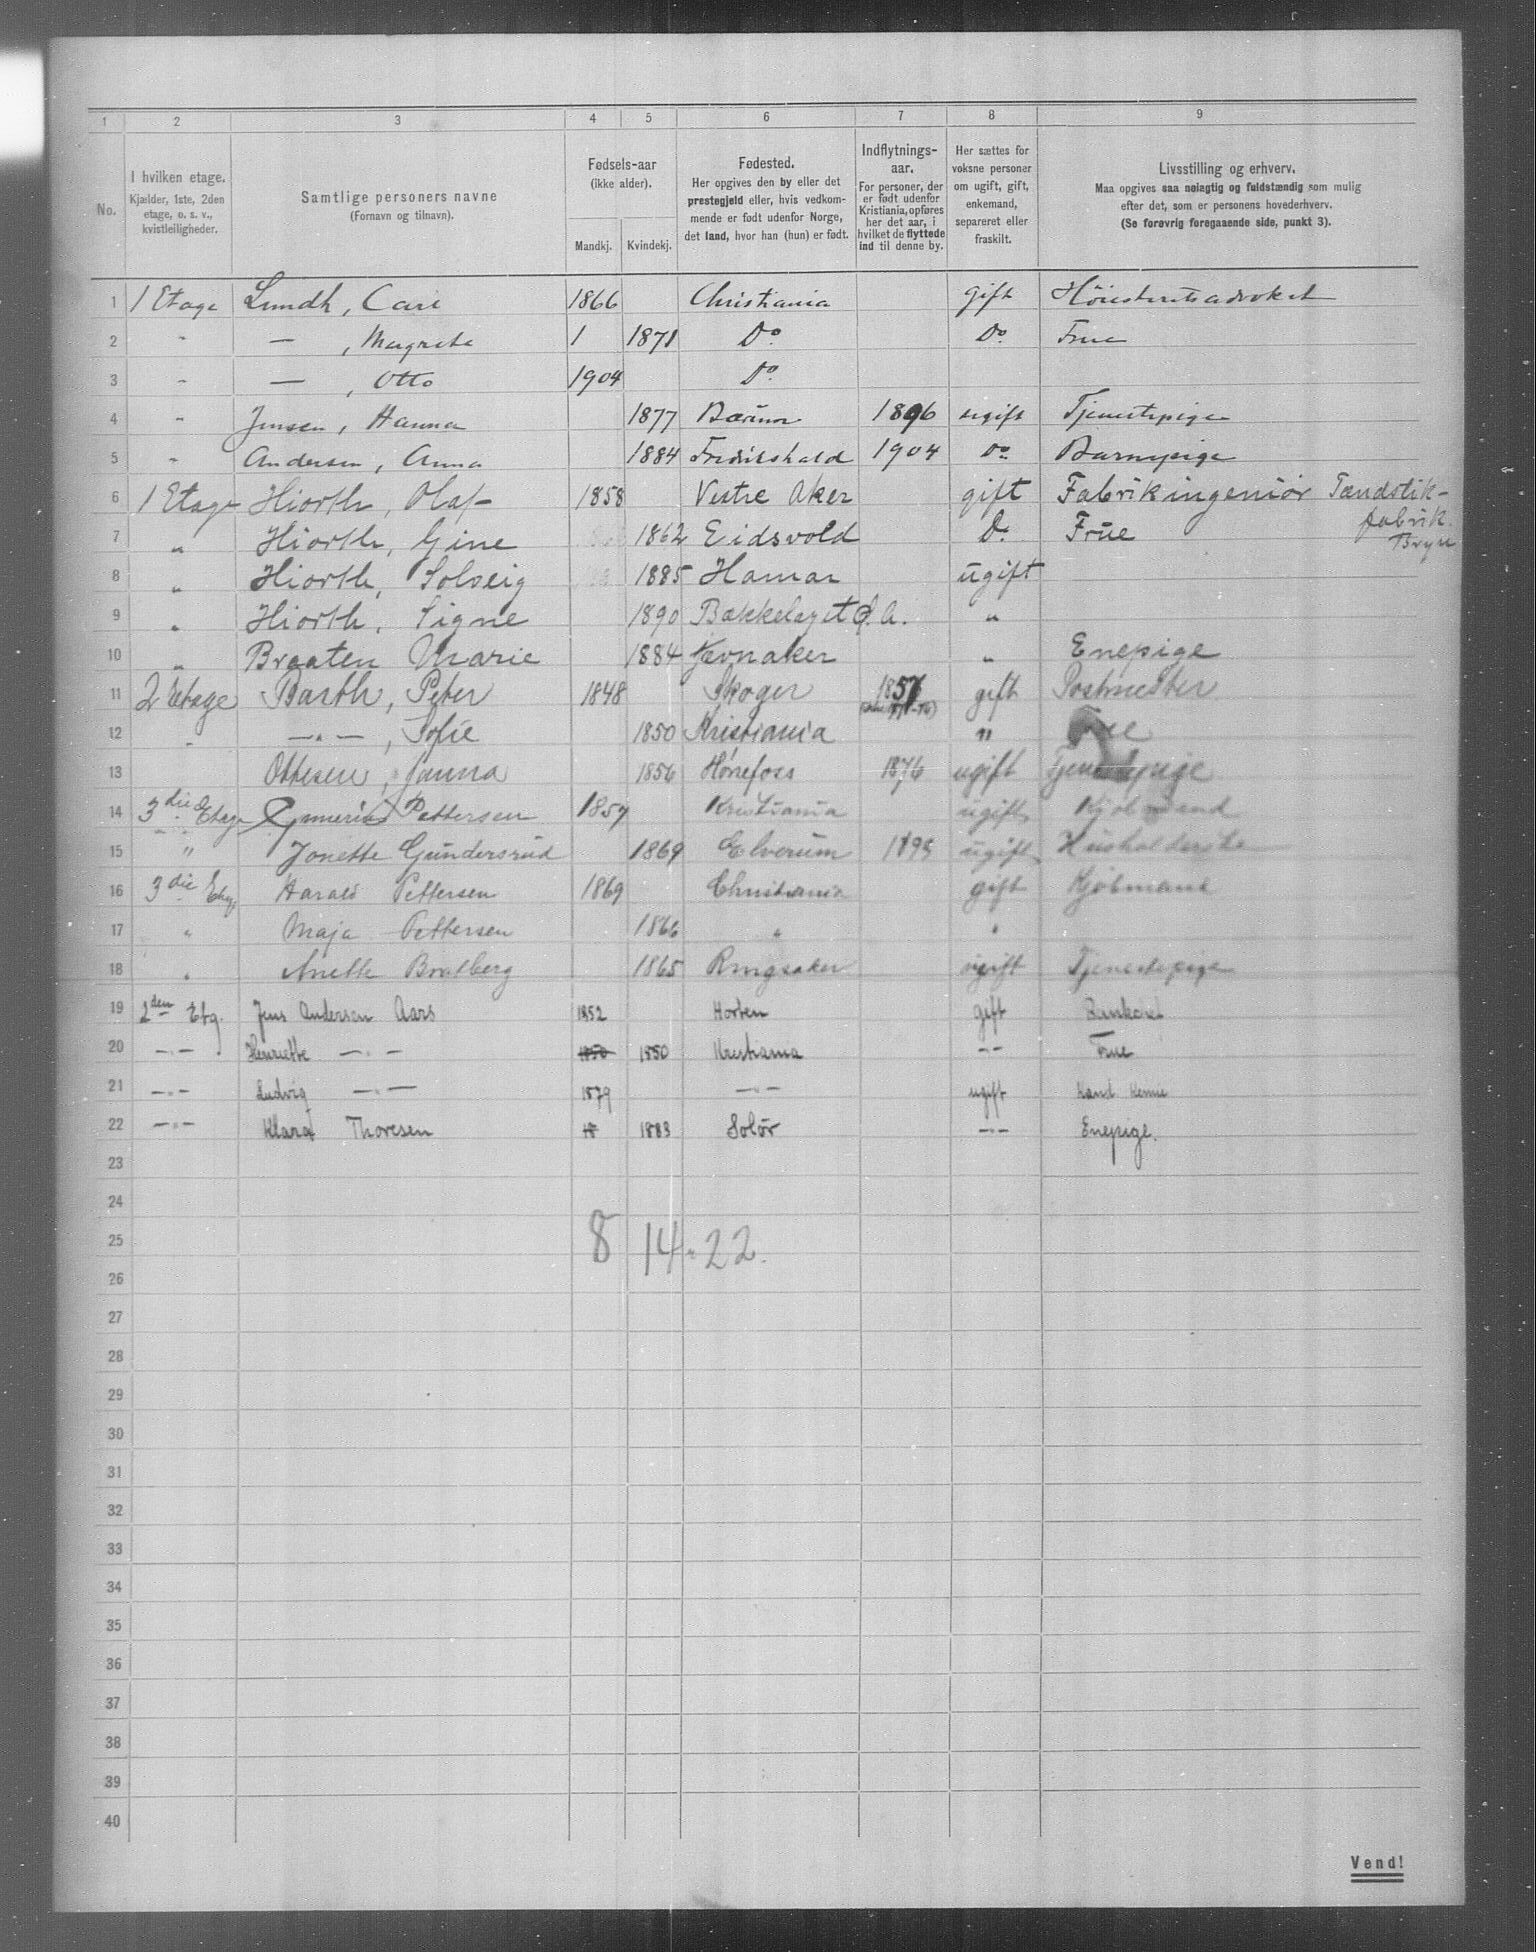 1 2 3 4 5 6 7 8 9
No. I hvilken etage. Kjælder, 1ste, 2den etage, o. s. v., kvistleiligheder. Samtlige personers navne (Fornavn og tilnavn). Fødsels-aar (ikke alder). Mandkj. Kvindekj. Fødested. Her opgives den by eller det prestegjeld eller, hvis vedkommende er født udenfor Norge, det land, hvor han (hun) er født. Indflytnings-aar. For personer, der er født udenfor Kristiania, opføres her det aar, i hvilket de flyttede ind til denne by. Her sættes for voksne personer om ugift, gift, enkemand, separeret eller fraskilt. Livsstilling og erhverv. Maa opgives saa nøiagtig og fuldstændig som mulig efter det, som er personens hovederhverv. (Se forøvrig foregaaende side, punkt 3).
1 1 Etage Lundh, Carl 1866 Christiania gift Høiesteretsadvokat
2 " — , Magrete 1 1871 Do Do Frue
3 " — , Otto 1904 Do
4 " Jensen, Hanna 1877 Bærum 1896 ugift Tjenestepige
5 " Andersen, Anna 1884 Fredrikshald 1904 Do Barnepige
6 1 Etage Hiorth, Olaf 1858 Vestre Aker gift Fabrikingeniør Tændstik-
fabrik. Bryn
7 " Hiorth, Gine 1862 Eidsvold Do Frue
8 " Hiorth, Solveig 1885 Hamar ugift
9 " Hiorth, Signe 1890 Bækkelaget Ø. A. "
10 " Braaten Marie 1884 Jævnaker " Enepige
11 2 Etage Barth, Peter 1848 Skoger 1857 gift Postmester
12 " —"— , Sofie 1850 Kristiania " Frue
13 Ottesen, Janna 1856 Hønefoss 1876 ugift Tjenestepige
14 3die Etage Pettersen 1857 Kristiania ugift Kjøbmand
15 " Jonette Gundersrud 1869 Elverum 1895 ugift Husholderske
16 3die Etg. Harald Pettersen 1869 Christiania gift Kjøbmand
17 " Maja Pettersen 1866 " "
18 " Anette Bratberg 1865 Ringsaker ugift Tjenestepige
19 2den Etg. Jens Andersen Aars 1852 Horten gift
20 —"— Henriette —"— 1850 1850 Kristiania —"— Frue
21 —"— Ludvig —"— 1879 —"— ugift Kand. Kemie
22 —"— Klara Thoresen 18 1883 Solør —"— Enepige.
23
24
25 8 14 = 22.
26
27
28
29
30
31
32
33
34
35
36
37
38
39
40
Vend!